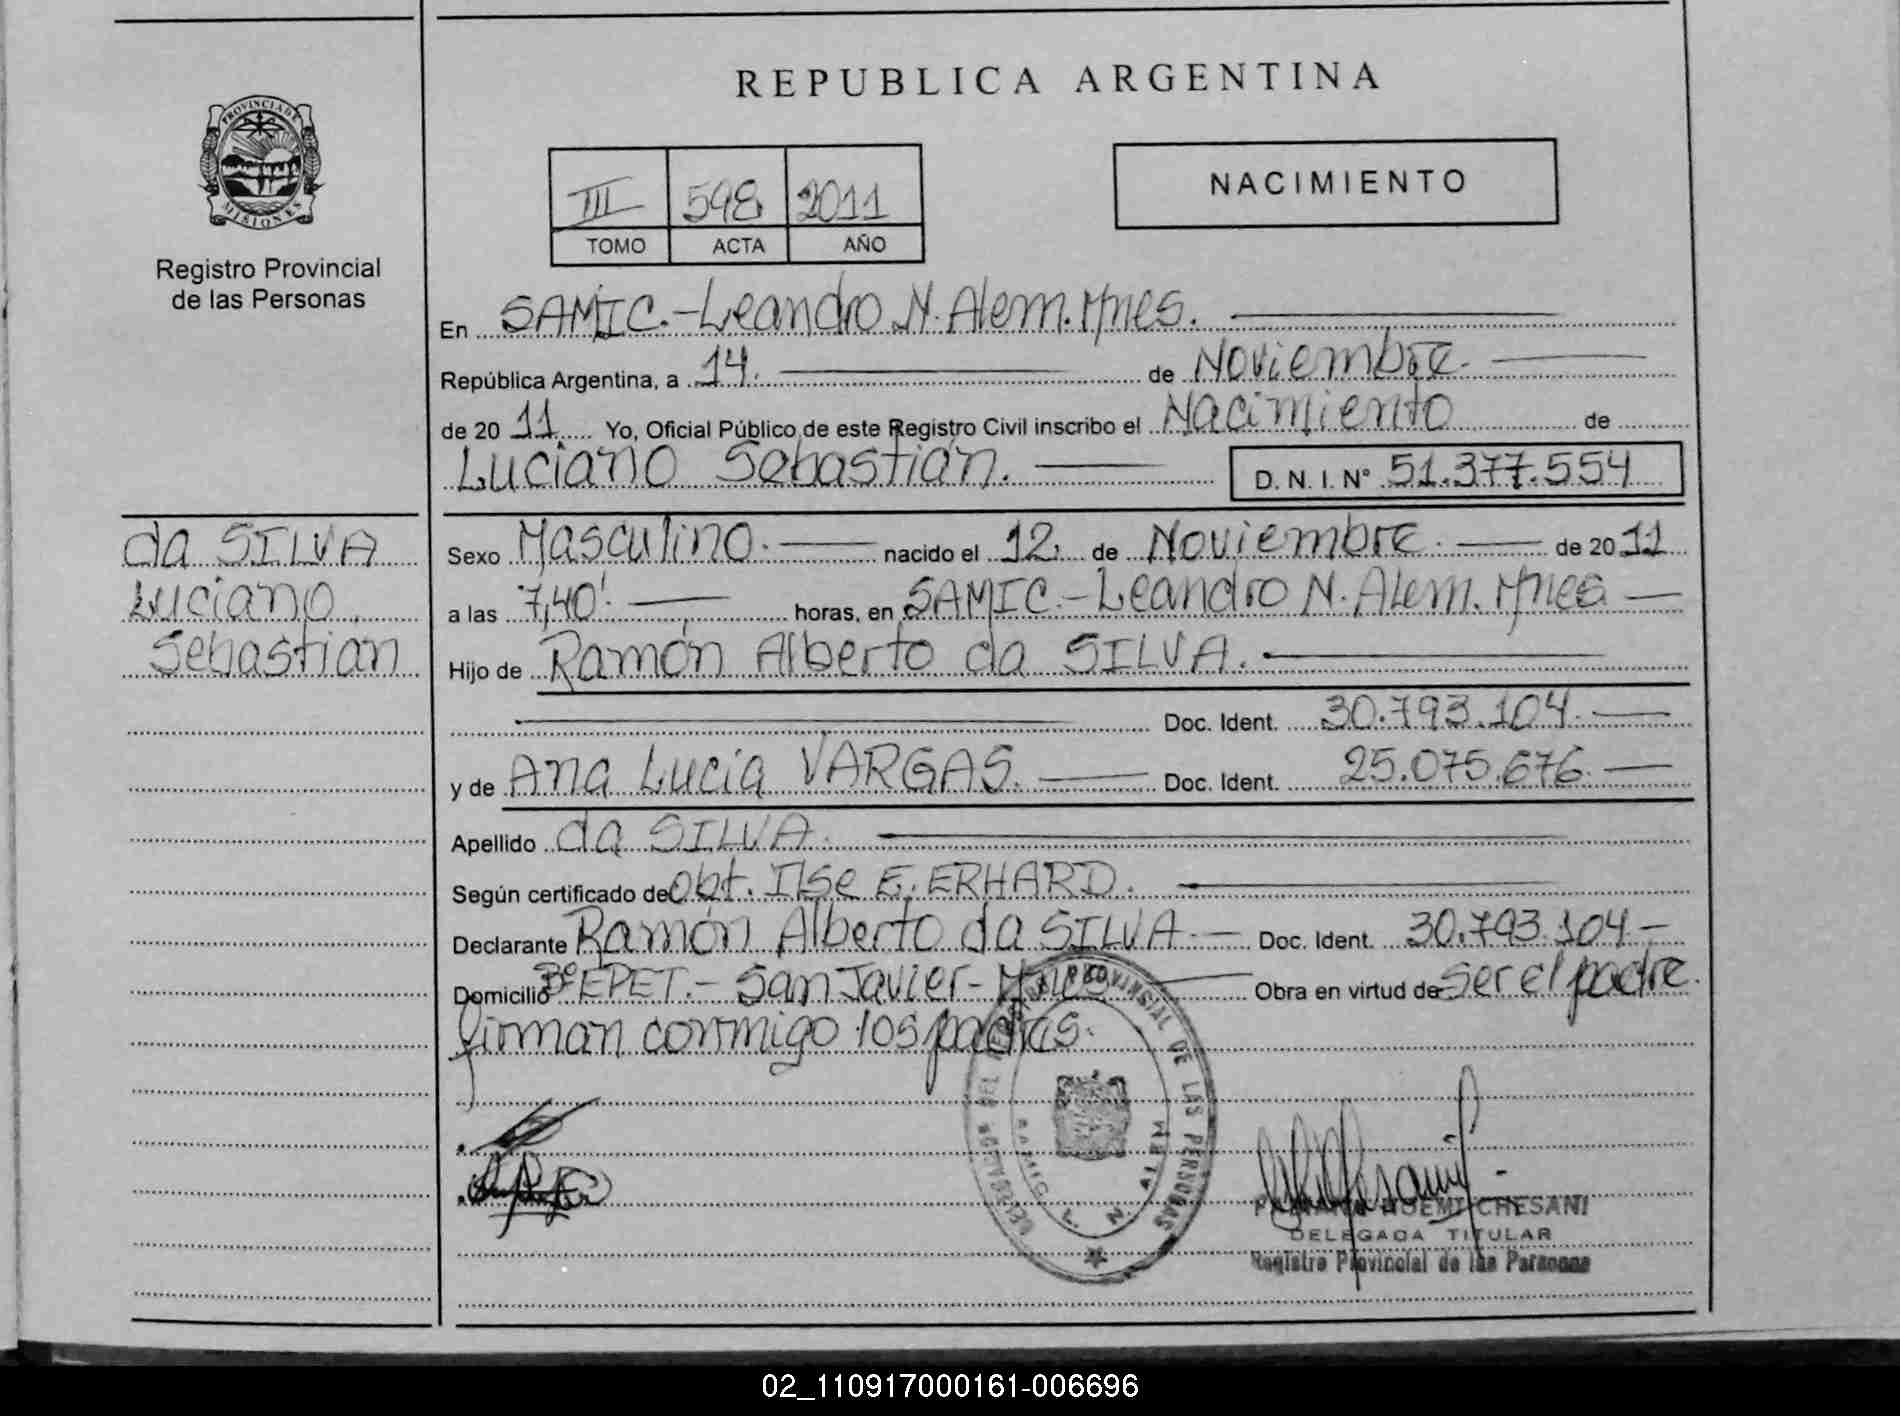 REPUBLICA ARGENTINA
PROVINCIA DE
MISIONES
Registro Provincial
de las Personas
III 598 2011
TOMO ACTA AÑO
NACIMIENTO
En SAMIC.-Leandro N. Alem. Mnes.
República Argentina, a 14. de Noviembre.
de 20 11. Yo, Oficial Público de este Registro Civil inscribo el Nacimiento de
Luciano Sebastián. D. N. I. N° 51.377.554
da SILVA
Luciano
Sebastian
Sexo Masculino. nacido el 12. de Noviembre. de 20 11
a las 7,40'. horas, en SAMIC.-Leandro N. Alem. Mnes
Hijo de Ramón Alberto da SILVA.
Doc. Ident. 30.793.104.
y de Ana Lucia VARGAS. Doc. Ident. 25.075.676.
Apellido da SILVA.
Según certificado de Obt. Ilse E. ERHARD.
Declarante Ramón Alberto da SILVA. Doc. Ident. 30.793.104
Domicilio Bº EPET.- San Javier- Mnes Obra en virtud de Ser el padre.
firman conmigo los padres.
DELEGACION DEL REGISTRO PROVINSIAL DE LAS PERSONAS
SAMIC L. N. ALEM
NOEMI CHESANI
DELEGADA TITULAR
Registro Provincial de las Personas
02_110917000161-006696